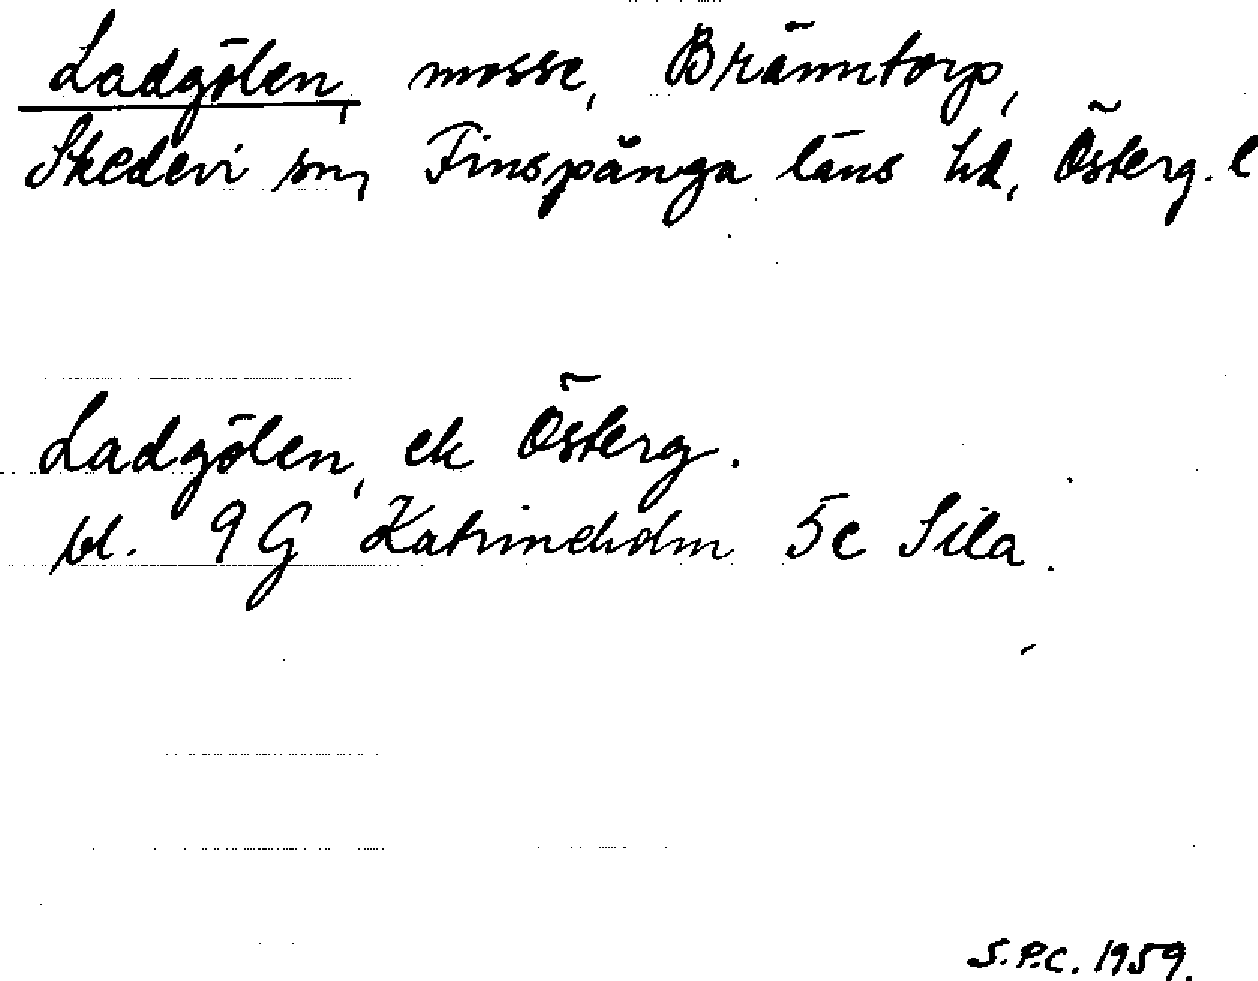 Ladgölen, mosse, Bränntorp,
Skedevi sn, Finspånga läns hd, Österg. l
Ladgölen, ek Österg.
bl. 9 G Katrineholm 5c Sila.
S.P.C. 1959.